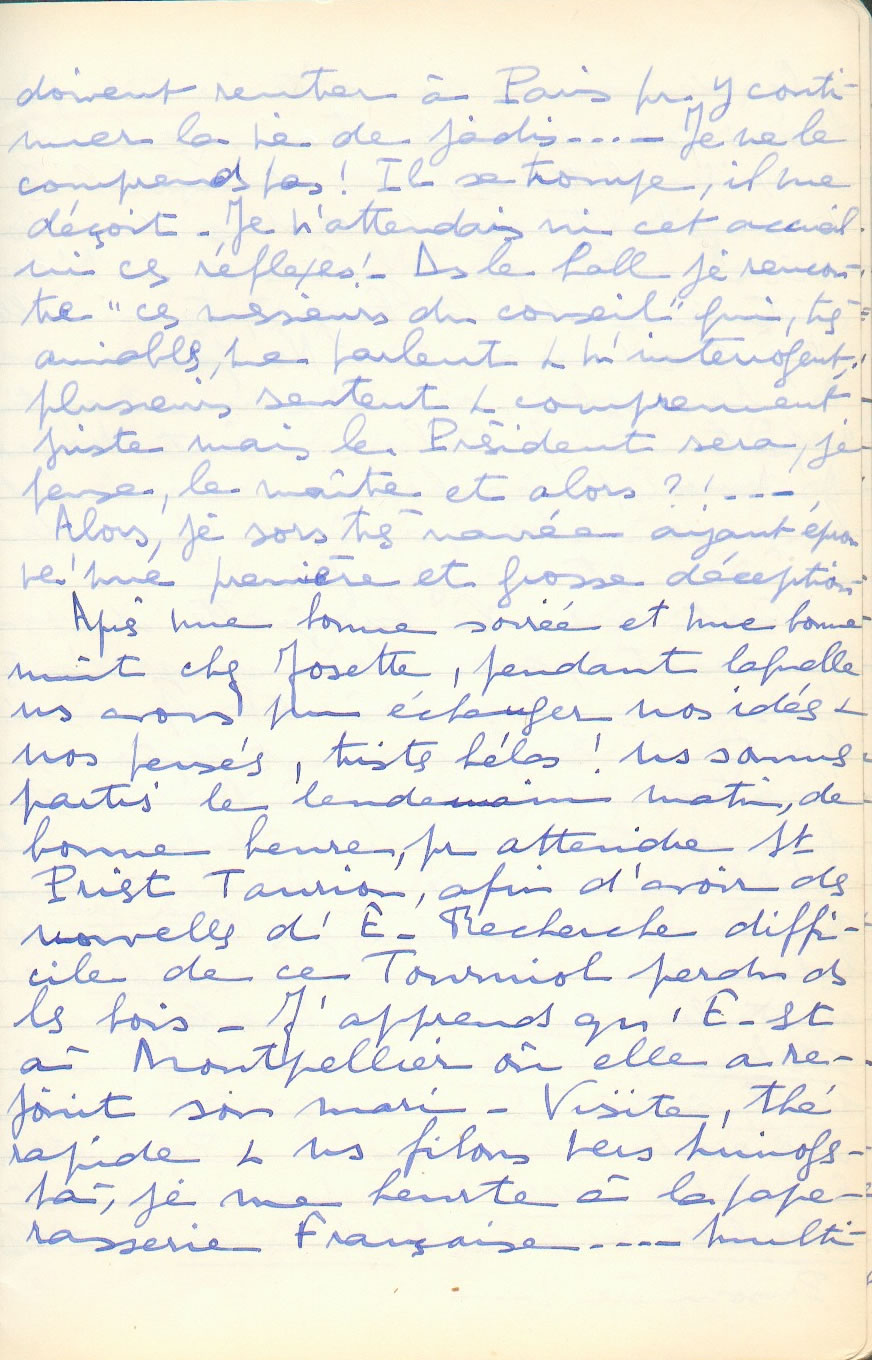 doivent rentrer à Paris pr. y conti-
nuer la vie de jadis .... Je ne le
comprends pas ! Il se trompe, il me
déçoit - Je n'attendais ni cet accueil
ni ces réflexes ! - Ds le hall je rencon-
tre "ces messieurs du conseil" qui, très
aimables, me parlent & m'interrogent,
plusieurs sentent & comprennent
juste mais le Président sera, je
pense, le maître et alors ? ! ---
Alors, je sors très navrée ayant éprou
vé une première et grosse déception
Après une bonne soirée et une bonne
nuit chez Josette, pendant laquelle
ns avons pu échanger nos idées &
nos pensées, tristes hélas ! ns sommes
partis le lendemain matin, de
bonne heure, pr atteindre St
Priest Taurion, afin d'avoir des
nouvelles d' E - Recherche diffi-
cile de ce Tourniol perdu ds
les bois - J'apprends qu' E - St
à Montpellier où elle a re-
joint son mari - Visite, thé
rapide & ns filons vers Limoges -
là, je me heurte à la pape-
rasserie Française .... multi-